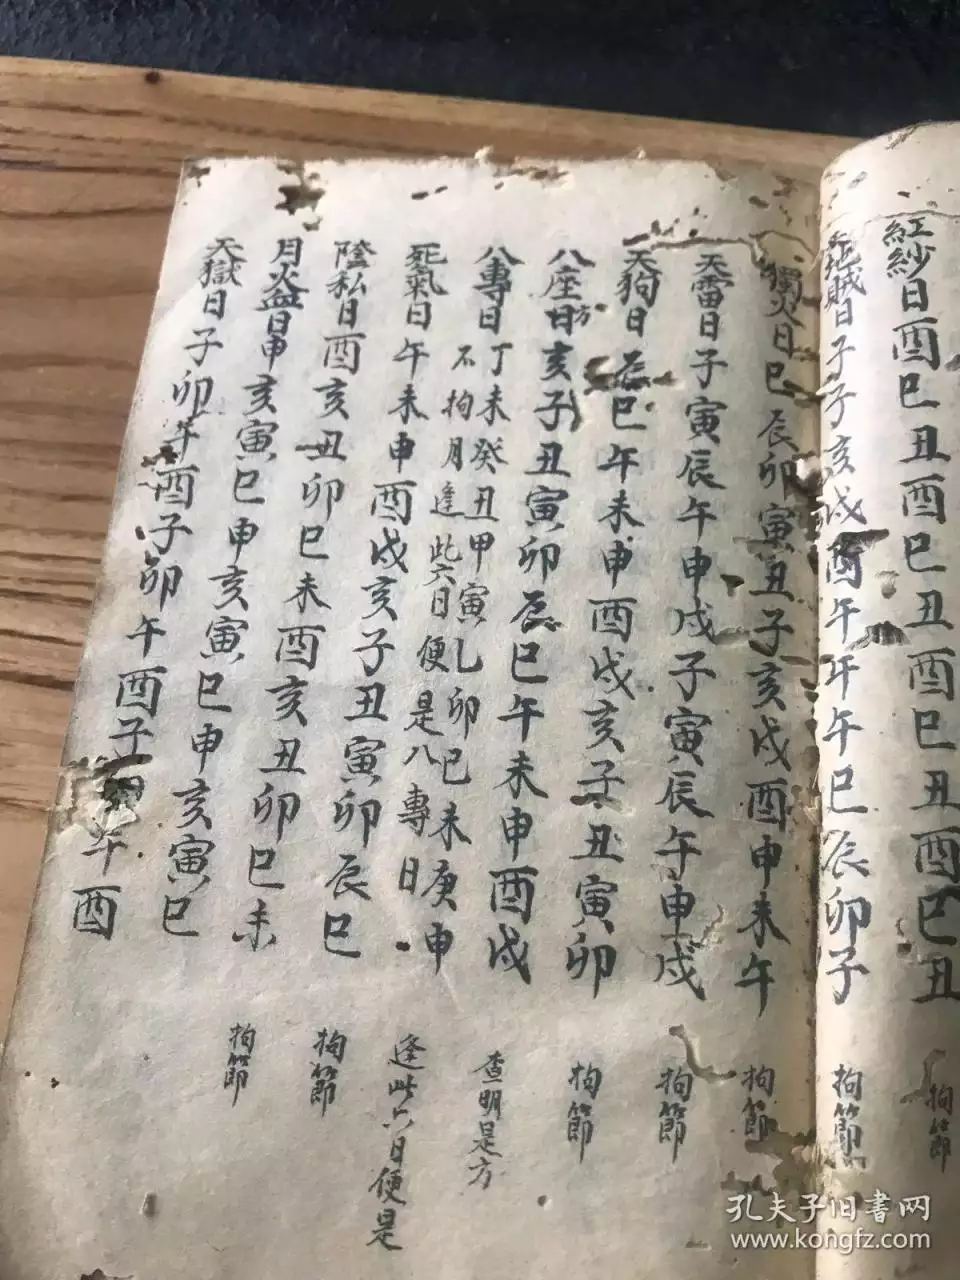 紅紗日酉巳丑酉巳丑酉巳丑酉巳丑 拘節
賊日子子亥戌酉午午午巳辰卯子 拘節
獨火日巳辰卯寅丑子亥戌酉申未午 拘節
天雷日子寅辰午申戌子寅辰午申戌 拘節
天狗日辰巳午未申酉戌亥子丑寅卯 拘節
八座日方亥子丑寅卯辰巳午未申酉戌 查明是方
八專日丁未癸丑甲寅乙卯巳未庚申 逢此六日便是
不拘月逢此六日便是八專日
死氣日午未申酉戌亥子丑寅卯辰巳 拘節
陰私日酉亥丑卯巳未酉亥丑卯巳未 拘節
月火血日申亥寅巳申亥寅巳申亥寅巳
天獄日子卯午酉子卯午酉子卯午酉
孔夫子旧书网
www.kongfz.com